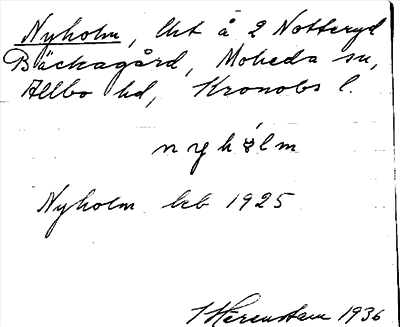 Nyholm, lht å 2 Notteryd
Bäckagård, Moheda sn,
Allbo hd, Kronobs l.
nyhólm
Nyholm kb 1925
1936